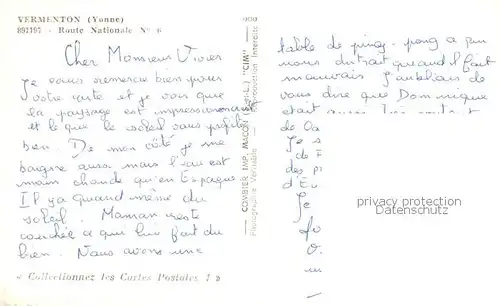 VERMENTON (Yonne)
Route Nationale N° 6
Cher Monsieur Vivier
Je vous remercie bien pour
votre carte et je vois que
la paysage est impressionnant
et le que le soleil vous profite
bien. De mon côté je me
baigne aussi mais l'eau est
moin chaude qu'en Espagne
Il y a quand même du
soleil. Maman reste
couchée ce qui lui fait du
bien. Nous avons une
« Collectionnez les Cartes Postales ! »
COMBIER IMP. MACON (S.-&-L.) "CIM"
Photographie Véritable - Reproduction Interdite
table de ping-pong a qui
nous distrait quand il fait
mauvais J'oubliais de
vous dire que Dominique
etait aussi
de
Je
de
des
d'Eu
Je
privacy protection
Datenschutz